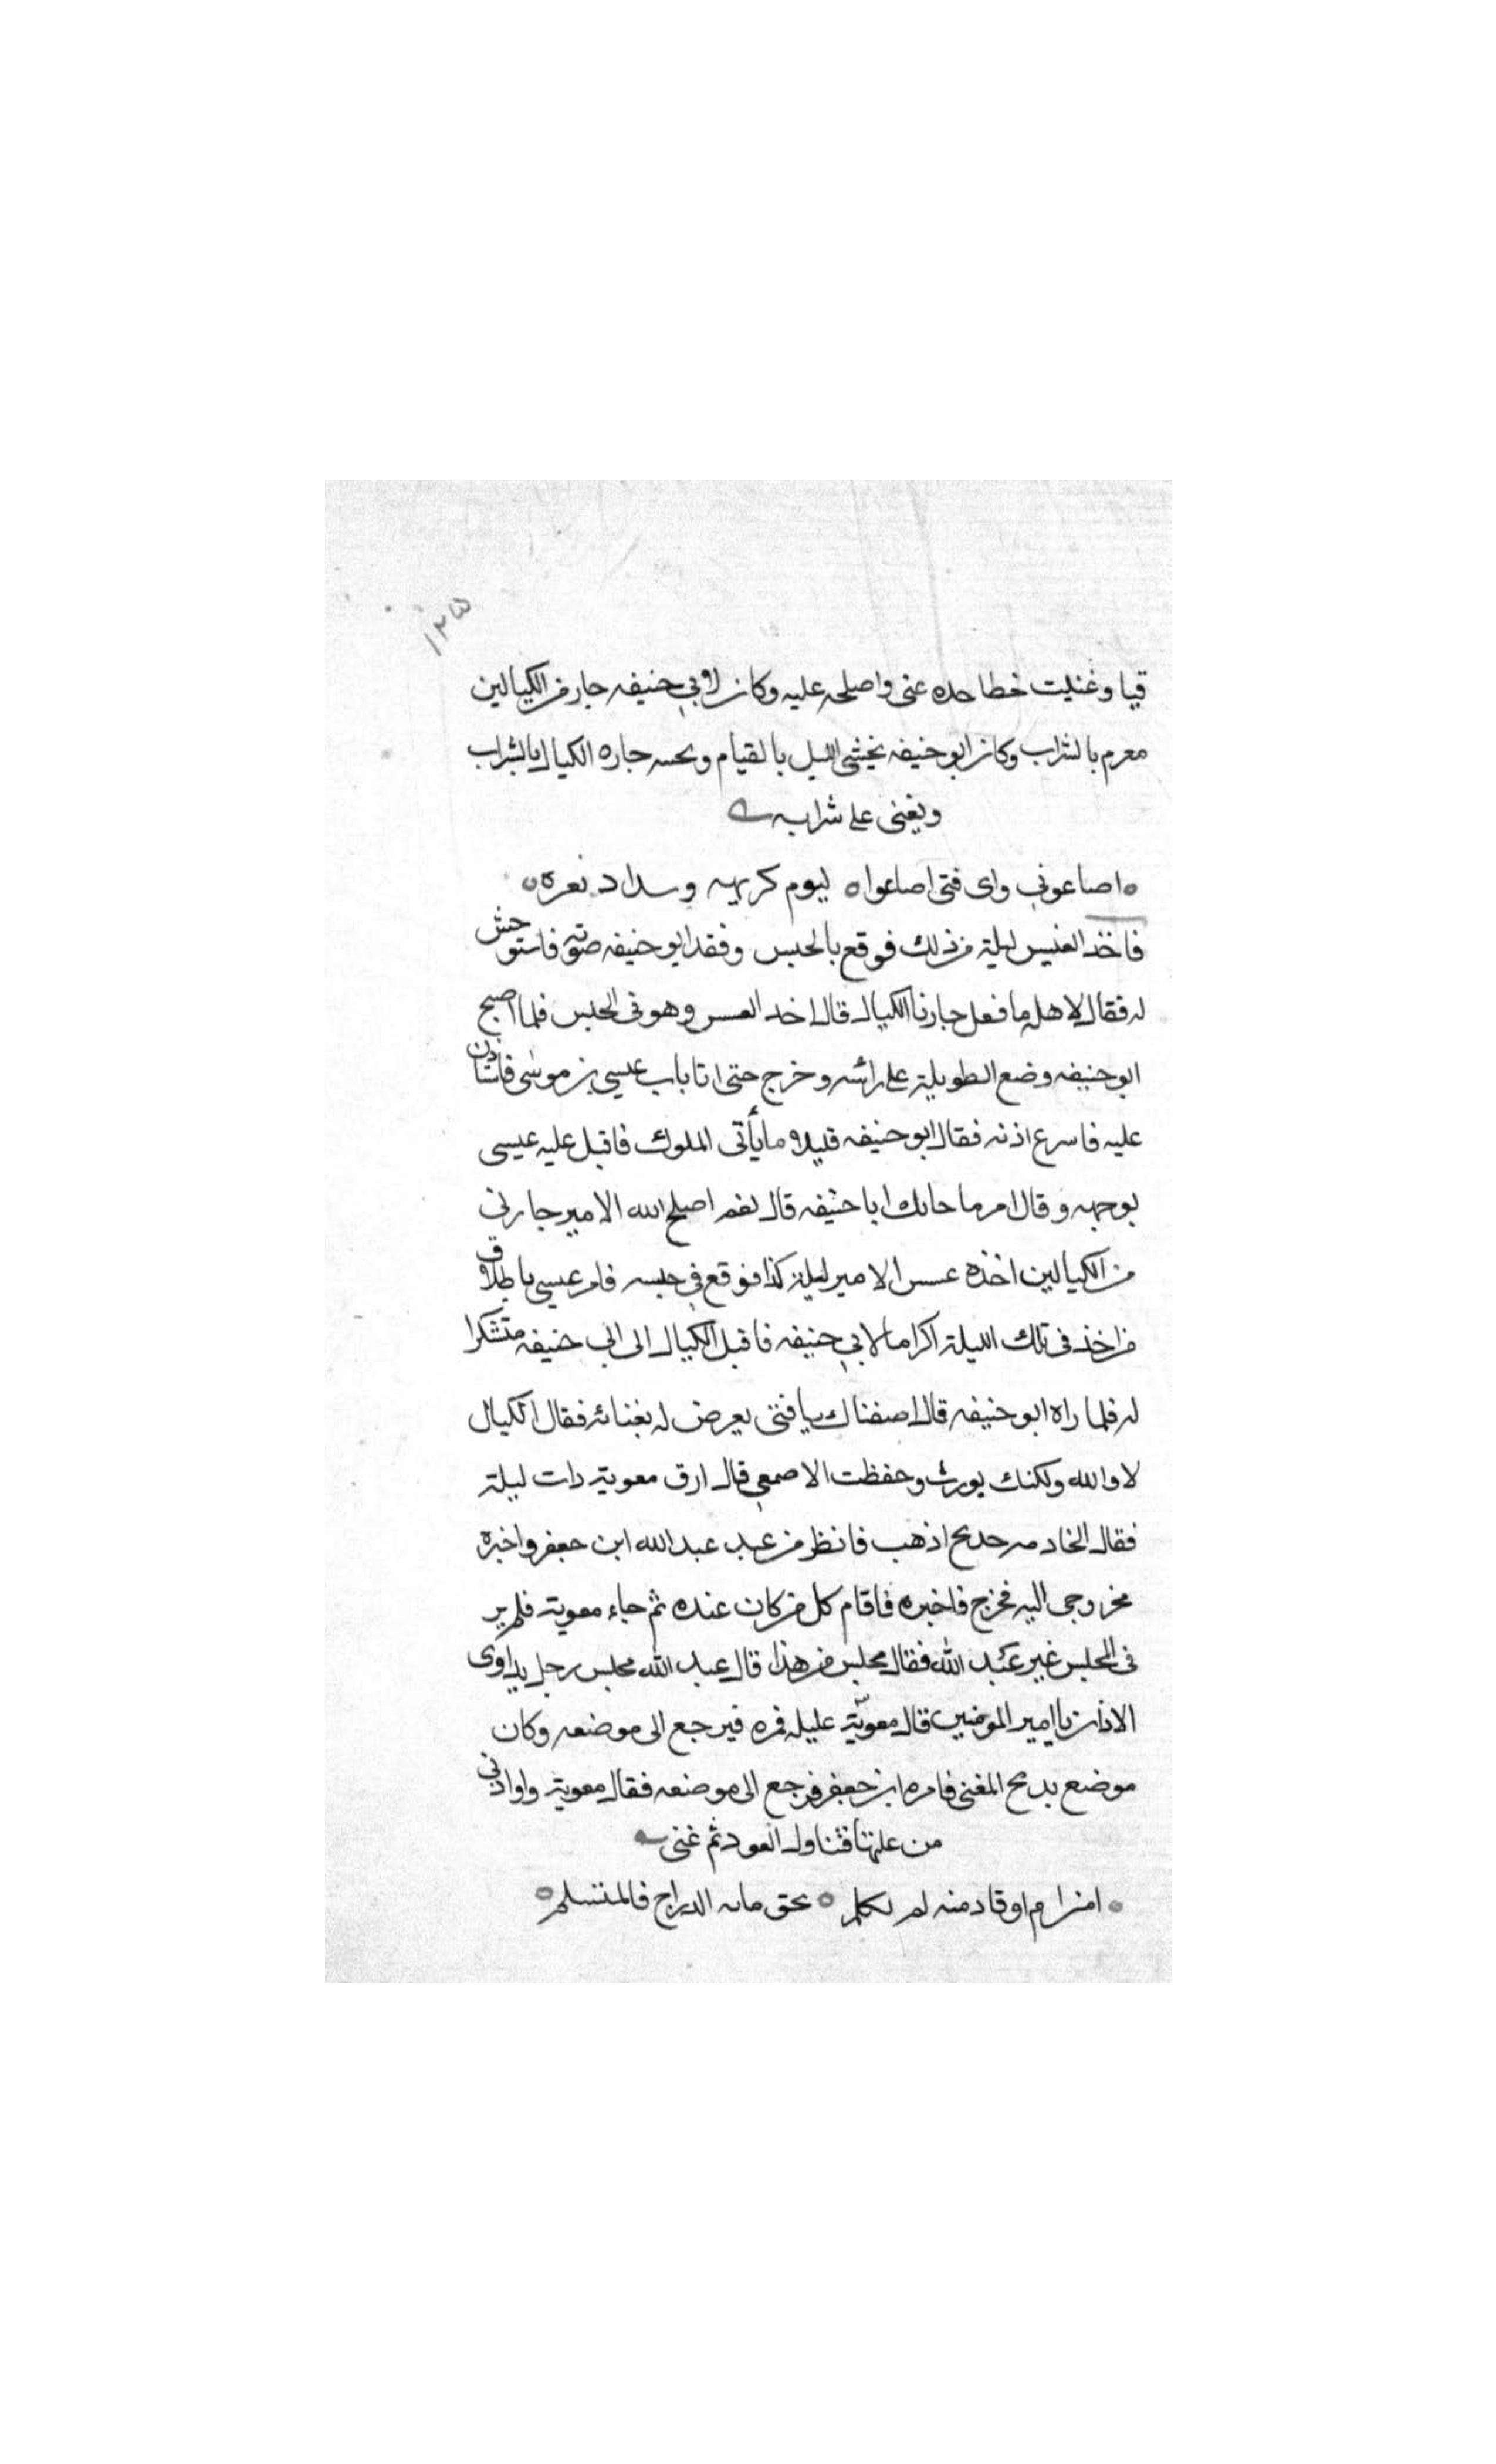 ١٢٥
قيا وغنيت خطا حده عنى واصلحه عليه وكان لابي حنيفه جار من الكيالين
معرم بالشراب وكان ابو حنيفه يحيى الليل بالقيام ويحييه جاره الكيال بالشراب
ويغنى على شرابه
اصاعوني واى فتى اصاعوا ليوم كريهه وسداد نعره
فاخذ العسس ليلة من ذلك فوقع بالحبس وفقد ابو حنيفه صوته فاستوحش
له فقال لاهله ما فعل جارنا الكيال قال اخد العسس وهو فى الحبس فلما اصبح
ابو حنيفه وضع الطويلة على رائسه وخرج حتى اتا باب عيسى بن موسى فاستاذن
عليه فاسرع اذنه فقال ابو حنيفه قليلا ما يأتى الملوك فاقبل عليه عيسى
بوجهه وقال امر ما حابك ابا حنيفه قال نعم اصلح الله الامير جار لى
من الكيالين اخذه عسس الامير ليلة كذا فوقع في حبسه فامر عيسى باطلاق
من اخذ فى تلك الليلة اكراما لابي حنيفه فاقبل الكيال الى ابي حنيفه متشكرا
له فلما راه ابو حنيفه قال اصفناك يا فتى يعرض له بغنائه فقال الكيال
لا والله ولكنك بورث وحفظت الاصمعي قال ارق معوية دات ليلة
فقال لخادمه حديح اذهب فانظر من عبد عبد الله ابن جعفر واخبره
بخروجى اليه فخرج فاخبره فاقام كل من كان عنده ثم جاء معوية فلم ير
فى المجلس غير عبد الله فقال مجلس من هذا قال عبد الله مجلس رجل يداوى
الاذان يا امير المومنين قال معوية عليله فمره فيرجع الى موضعه وكان
موضع بديح المغنى فامره ابن جعفر فرجع الى موضعه فقال معوية داو اذنى
من علتها فتناول العود ثم غنى
امن ام اوفا دمنه لم تكلم بحق مانه الدراج فالمتسلم